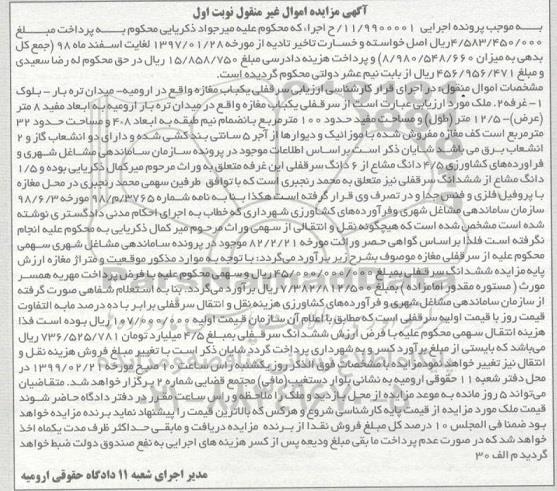 آگهی مزایده اموال غیر منقول نوبت اول
به موجب پرونده اجرایی ۱۱/۹۹۰۰۰۰۱/ح اجراء که محکوم علیه میرجواد ذکریایی محکوم به پرداخت مبلغ
۴/۵۸۳/۴۵۰/۰۰۰ریال اصل خواسته و خسارت تاخیر تادیه از مورخه ۱۳۹۷/۰۱/۲۸ لغایت اسفند ماه ۹۸ (جمع کل
بدهی به میزان ۸/۹۸۰/۵۴۸/۶۶۰) و پرداخت هزینه دادرسی مبلغ ۱۵/۸۵۸/۷۵۰ ریال در حق محکوم له رضا سعیدی
و مبلغ ۴۵۶/۹۵۶/۴۷۱ ریال از بابت نیم عشر دولتی محکوم گردیده است.
مشخصات اموال منقول در اجرای قرار کارشناسی ارزیابی سرقفلی یکباب مغازه واقع در ارومیه- میدان تره بار - بلوک
۱- غرفه ۲. ملک مورد ارزیابی عبارت است از سرقفلی یکباب مغازه واقع در میدان تره بار ارومیه به ابعاد مفید ۸ متر
(عرض)- ۱۲/۵ متر (طول) و مساحت مفید حدود ۱۰۰ مترمربع بانضمام نیم طبقه به ابعاد ۴*۸ و مساحت حدود ۳۲
مترمربع است کف مغازه مفروش شده با موزائیک و دیوارها از آجر ۵ سانتی بند کشی شده و دارای دو انشعاب گاز و ۲
انشعاب برق می باشد شایان ذکر است بر اساس اطلاعات موجود در پرونده سازمان ساماندهی مشاغل شهری و
فراورده‌های کشاورزی ۴/۵ دانگ مشاع از ۶ دانگ سرقفلی این غرفه متعلق به وراث مرحوم میرکمال ذکریایی بوده و ۱/۵
دانگ مشاع از ششدانگ سرقفلی نیز متعلق به محمد رنجبری است که با توافق طرفین سهمی محمد رنجبری در محل مغازه
با پروفیل فلزی و فنس جدا و در تصرف وی قرار گرفته است هکذا بنا به نامه شماره ۳۷۶۵/م/۹۸ مورخه ۹۸/۶/۳
سازمان ساماندهی مشاغل شهری وفرآورده‌های کشاورزی شهرداری که خطاب به اجرای احکام مدنی دادگستری نوشته
شده است مشخص شده است که هیچگونه نقل و انتقالی از سهمی وراث مرحوم میر کمال ذکریایی به محکوم علیه انجام
نگرفته است فلذا بر اساس گواهی حصر وراثت مورخه ۸۲/۲/۲۱ موجود در پرونده ساماندهی مشاغل شهری سهمی
محکوم علیه از سرقفلی مغازه موصوف بشرح زیر برآورد می‌گردد: با توجه به موارد مذکور موقعیت و متراژ مغازه ارزش
پایه مزایده ششدانگ سرقفلی بمبلغ ۴۵/۰۰۰/۰۰۰/۰۰۰ ریال و سهمی محکوم علیه با فرض پرداخت مهریه همسر
مورث (مستوره مقدور امامزاده) بمبلغ ۷/۳۸۲/۸۱۲/۵۰۰ ریال برآورد می‌گردد. بنا به استعلام شفاهی صورت گرفته
از سازمان ساماندهی مشاغل شهری و فرآورده‌های کشاورزی هزینه نقل و انتقال سرقفلی برابر با ده درصد مابه التفاوت
قیمت روز با قیمت اولیه سرقفلی است که مطابق با اعلام آن سازمان قیمت اولیه ۱۰۷/۶۰۰/۰۰۰ ریال بوده است فلذا
هزینه انتقال سهمی محکوم علیه با فرض ارزش ششدانگ سرقفلی بمبلغ ۴/۵ میلیارد تومان ۷۳۶/۵۲۵/۷۸۱ ریال
می‌باشد که بایستی از مبلغ برآورد کسر و به شهرداری پرداخت گردد شایان ذکر است با تغییر مبلغ فروش هزینه نقل و
انتقال نیز تغییر خواهد نمود مزایده با مشخصات فوق الذکر روز یکشنبه راس ساعت ۱۰ صبح مورخه ۱۳۹۹/۰۲/۲۱ در
محل دفتر شعبه ۱۱ حقوقی ارومیه به نشانی بلوار دستغیب (مافی) مجتمع قضایی شماره ۲ برگزار خواهد شد. متقاضیان
می‌تواند ۵ روز مانده به موعد مزایده از محل بازدید نموده و آنگاه راما ملاحظه و راس ساعت مقرر در دفتر دادگاه حاضر شوند
قیمت ملک مورد مزایده از قیمت پایه کارشناسی شروع و هرکس که بالاترین قیمت را پیشنهاد نماید برنده مزایده خواهد
بود ضمنا فی المجلس ۱۰ درصد کل مبلغ فروش نقدا از برنده مزایده دریافت و مابقی حداکثر ظرف مدت یکماه اخذ
خواهد شد که در صورت عدم پرداخت ما بقی مبلغ ودیعه پس از کسر هزینه های اجرایی به نفع صندوق دولت ضبط خواهد
گردید م الف ۳۰
مدیر اجرای شعبه ۱۱ دادگاه حقوقی ارومیه